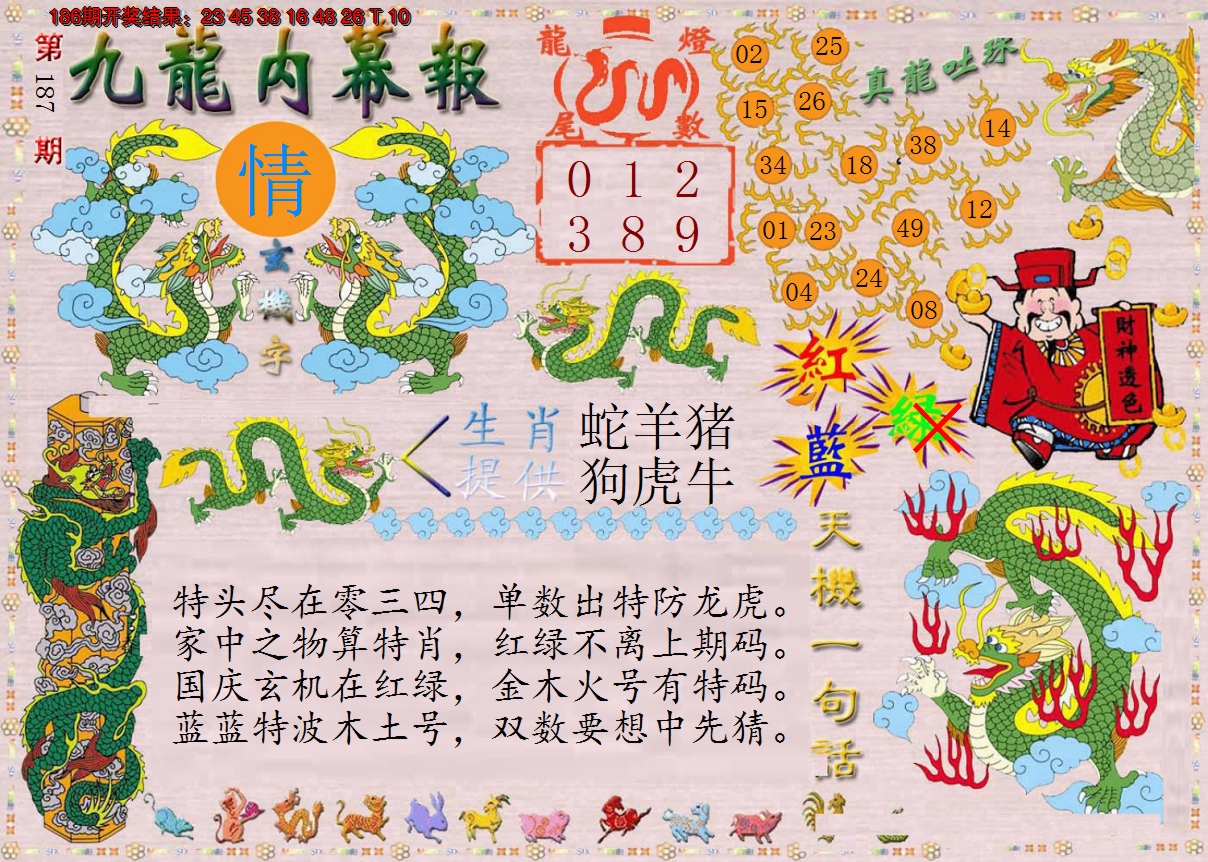 186期开奖结果：23 45 38 16 48 26 T 10
第187期
九龍内幕報
情
玄機字
龍燈
尾數
0 1 2
3 8 9
真龍吐珠
02 25
15 26
34 18 38 14
01 23 49 12
04 24 08
財神透色
紅
綠
藍
生肖 蛇羊猪
提供 狗虎牛
天機一句话
特头尽在零三四，单数出特防龙虎。
家中之物算特肖，红绿不离上期码。
国庆玄机在红绿，金木火号有特码。
蓝蓝特波木土号，双数要想中先猜。